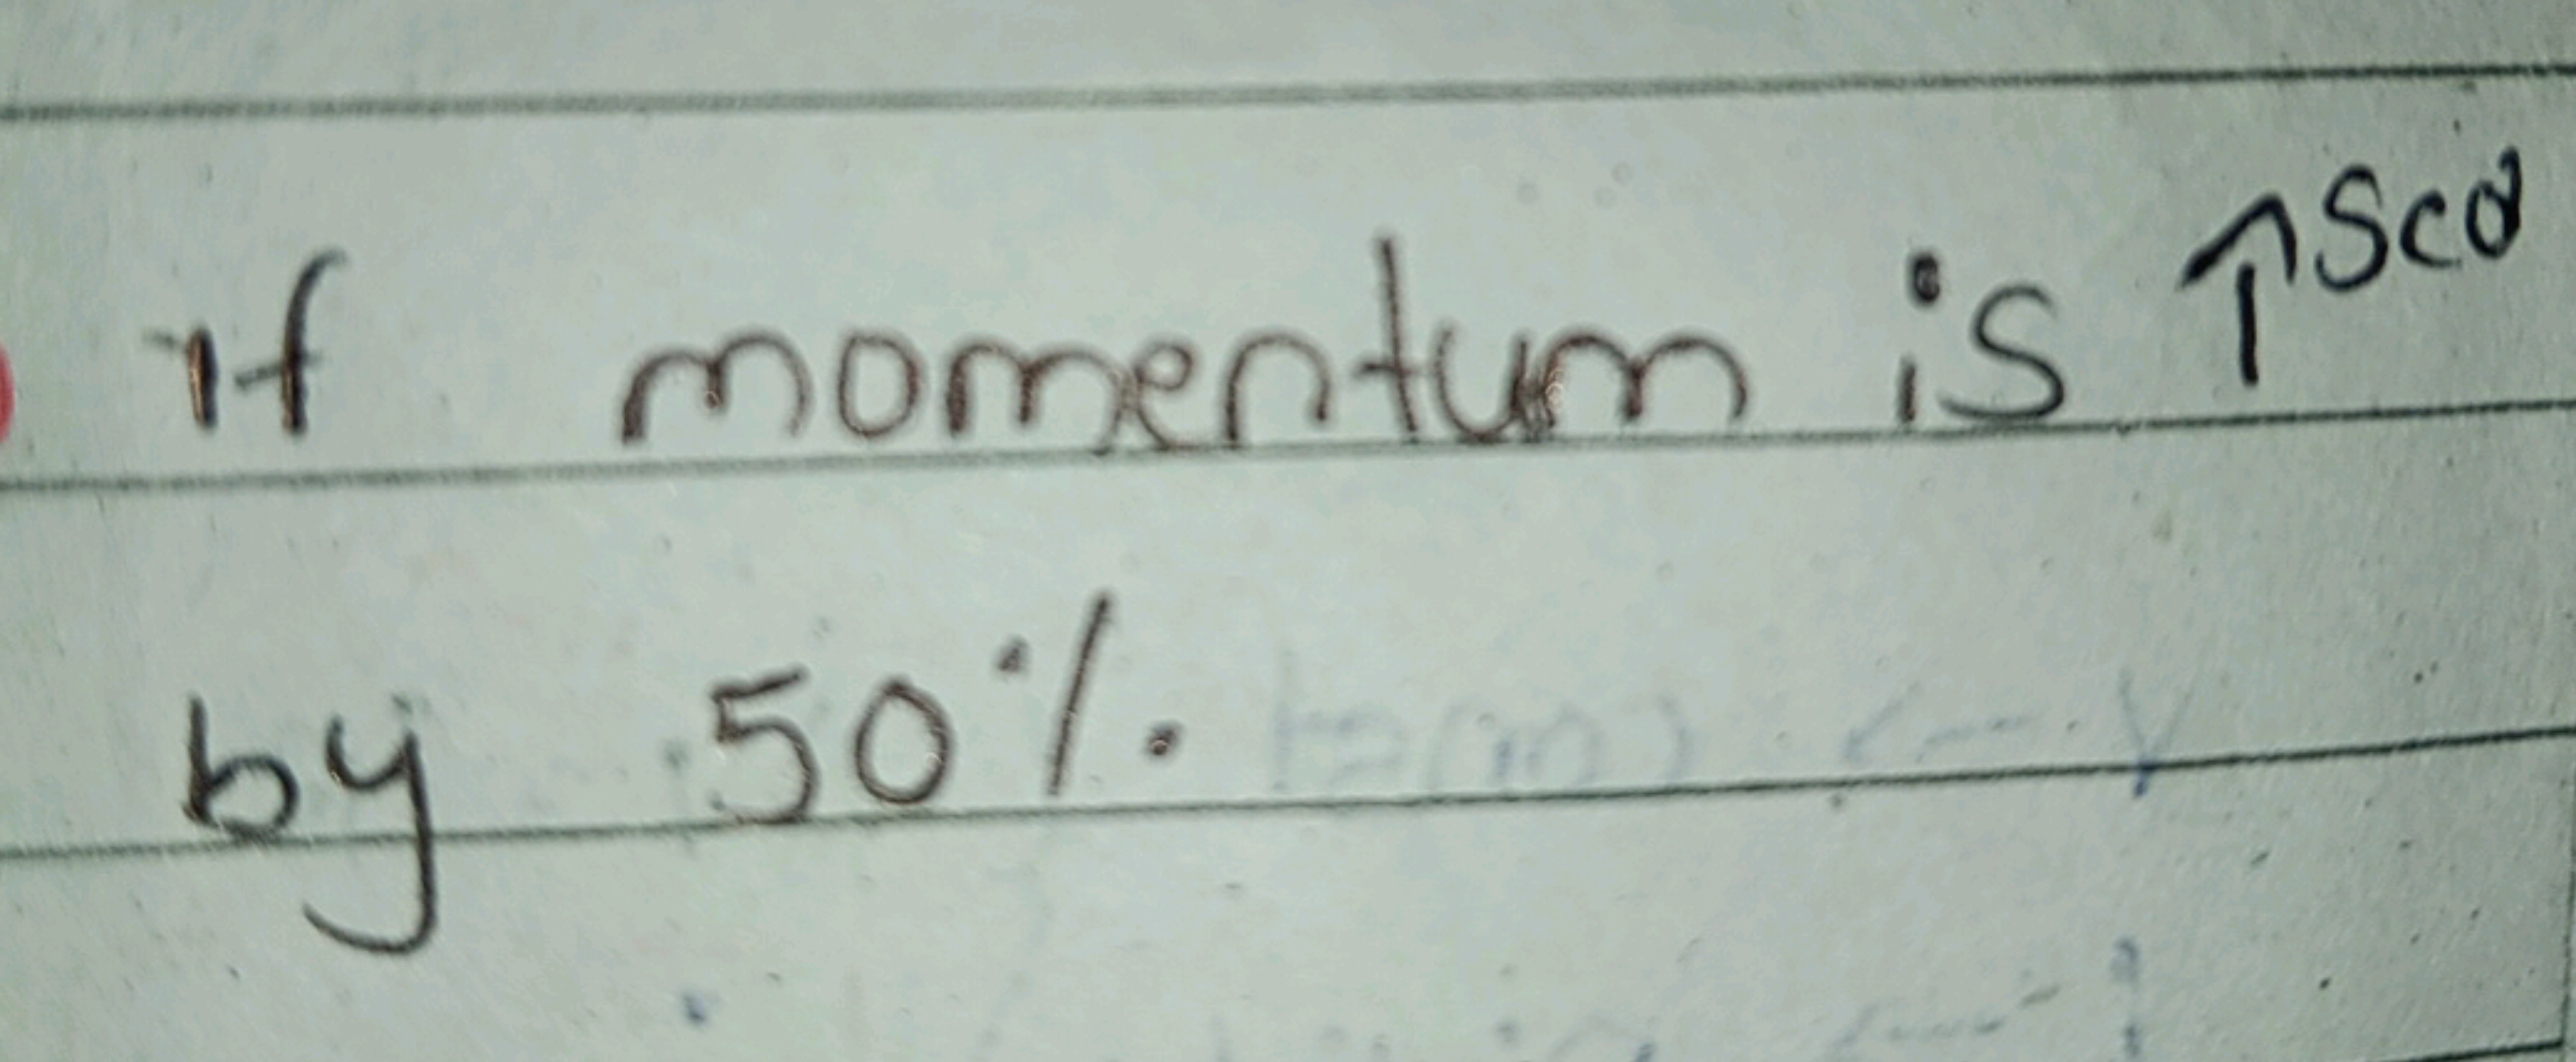 if momentum is ↑sed
by 50%.